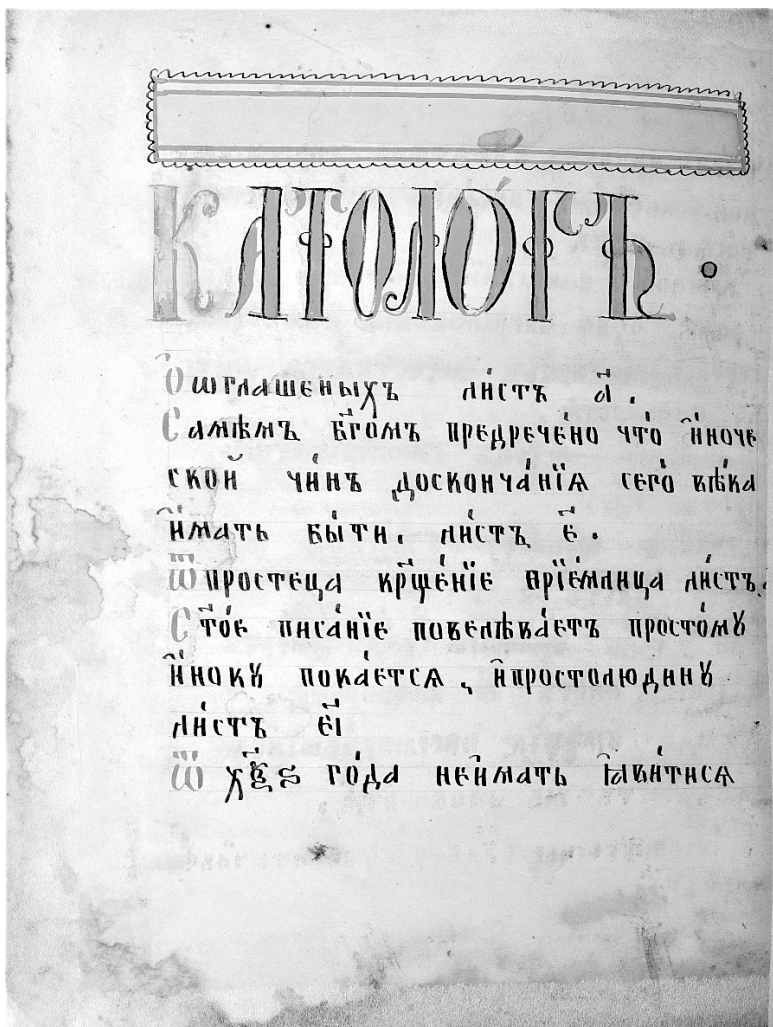 КАТОЛОГЪ.
Ѻ ѡглашеныхъ ли́стъ а҃.
Самѣмъ бг҃омъ предрече́но что̀ и҆́ноче
ской чи́нъ доскончанїѧ сего̀ вѣ́ка
и҆́мать бы́ти. ли́стъ є҃.
Ѿ простеца крщ҃е́нїе прїе́млица ли́стъ.
Ст҃о́е писа́нїе повелѣва́етъ просто́мꙋ
и҆́нокꙋ пока́етсѧ, и҆простолюдинꙋ
ли́стъ є҃і
Ѿ го́да неи́мать ꙗ҆ви́тисѧ